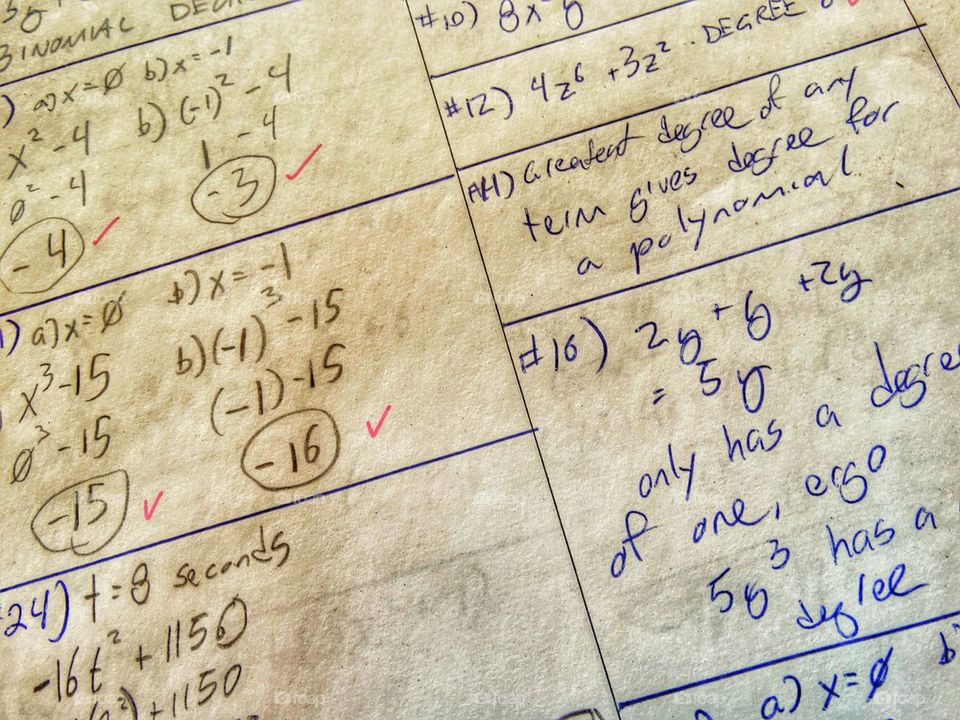 BINOMIAL
a) x=0 b) x=-1
x²-4 b) (-1)²-4
0²-4 1-4
-4 -3
a) x=0 b) x=-1
x³-15 b) (-1)³-15
0³-15 (-1)-15
-15 -16
24) t=8 seconds
-16t²+1150
+1150
#10) 8x y
#12) 4z⁶+3z² · DEGREE
Greatest degree of any
term gives degree for
a polynomial
#16) 2y+y+2y
= 5y
only has a degree
of one, ergo
5y³ has a
degree
a) x=0